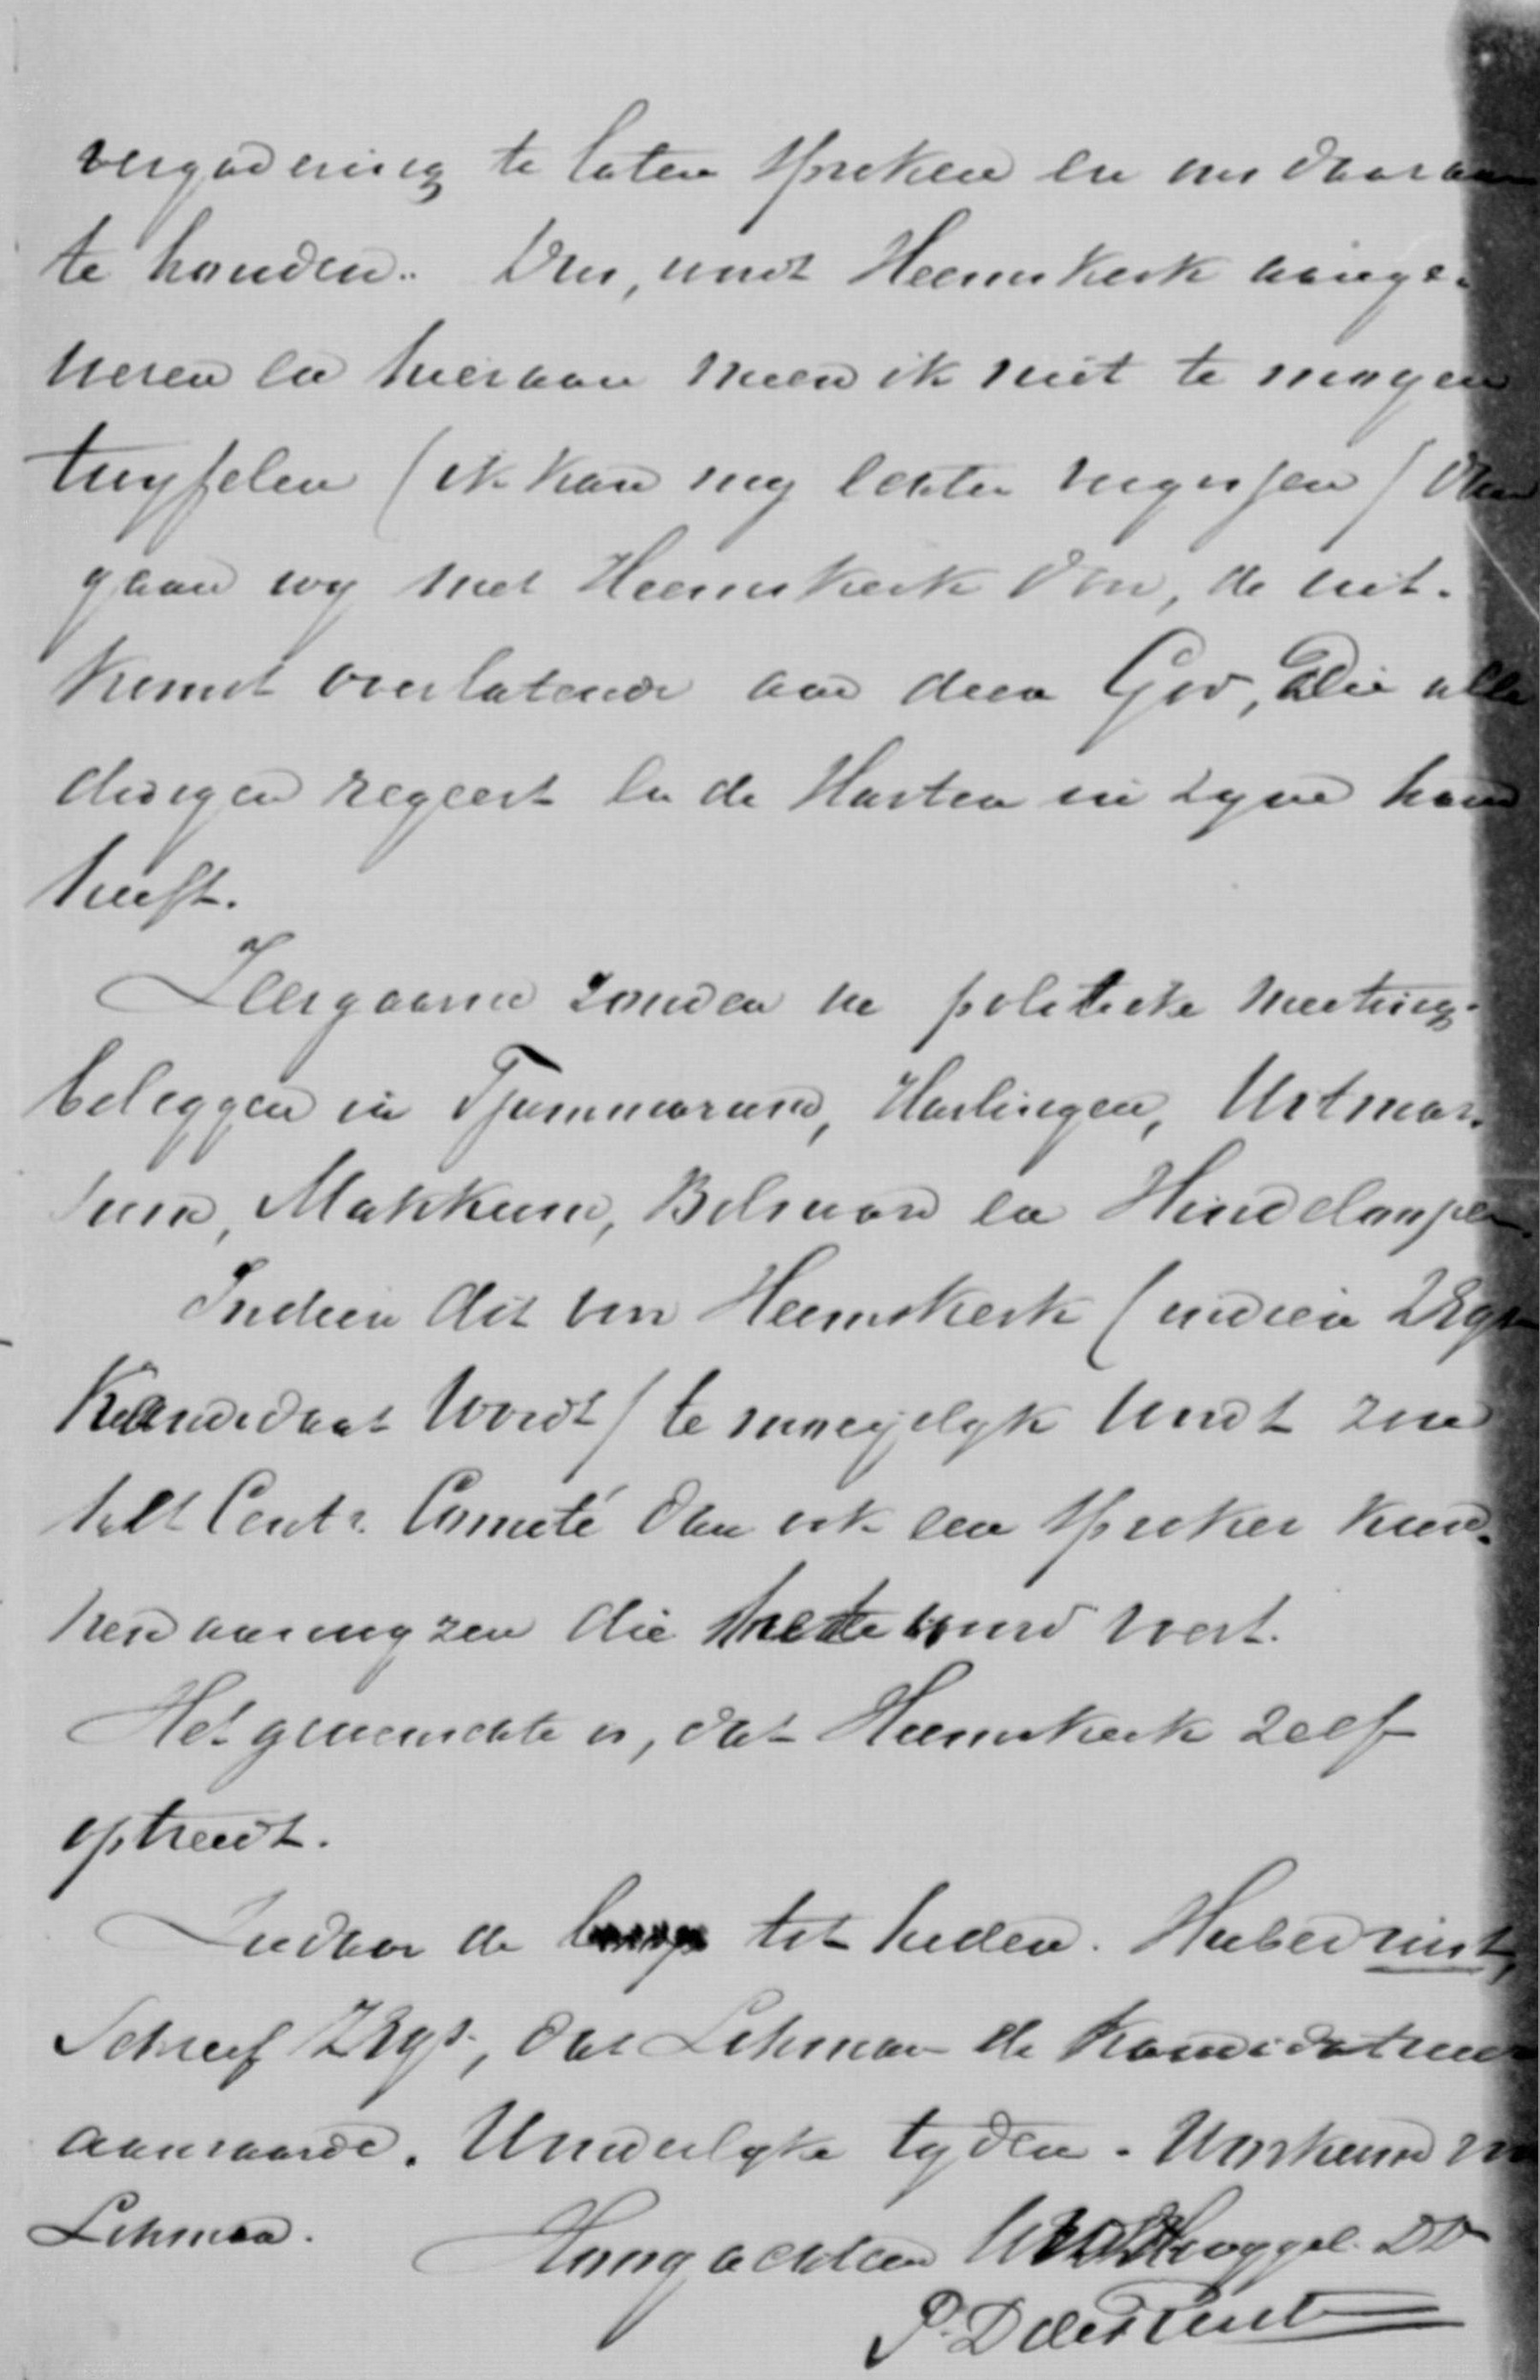 vergadering te laten spreken en ons daaraan
te houden. Dus, wordt Heemskerk aange-
wezen en hieraan meen ik niet te mogen
twyfelen (ik kan my echter vergissen) dan
gaan wy met Heemskerk door, de uit-
komst overlatende aan dien God, Die alle
dingen regeert en de Harten in zyne hand
heeft.
Zeergaarne zouden we politieke meeting-
beleggen in Tjummarum, Harlingen, Witmar-
sum, Makkum, Bolsward en Hindeloopen
Indien dit voor Heemskerk (indien ZEgn
Kandidaat wordt) te moeyelyk wordt zou
het Centr. Comité dan ook een spreker kun-
nen aanwyzen die
Het gewenschte is, dat Heemskerk zelf
optreedt.
Ziedaar de tot heden. Huber niet,
schreef ZEgn, dat Lohman de Kandidatuur
aanvaarde. Wonderlyke tyden. Workum
Lohman.
Hoogachtend